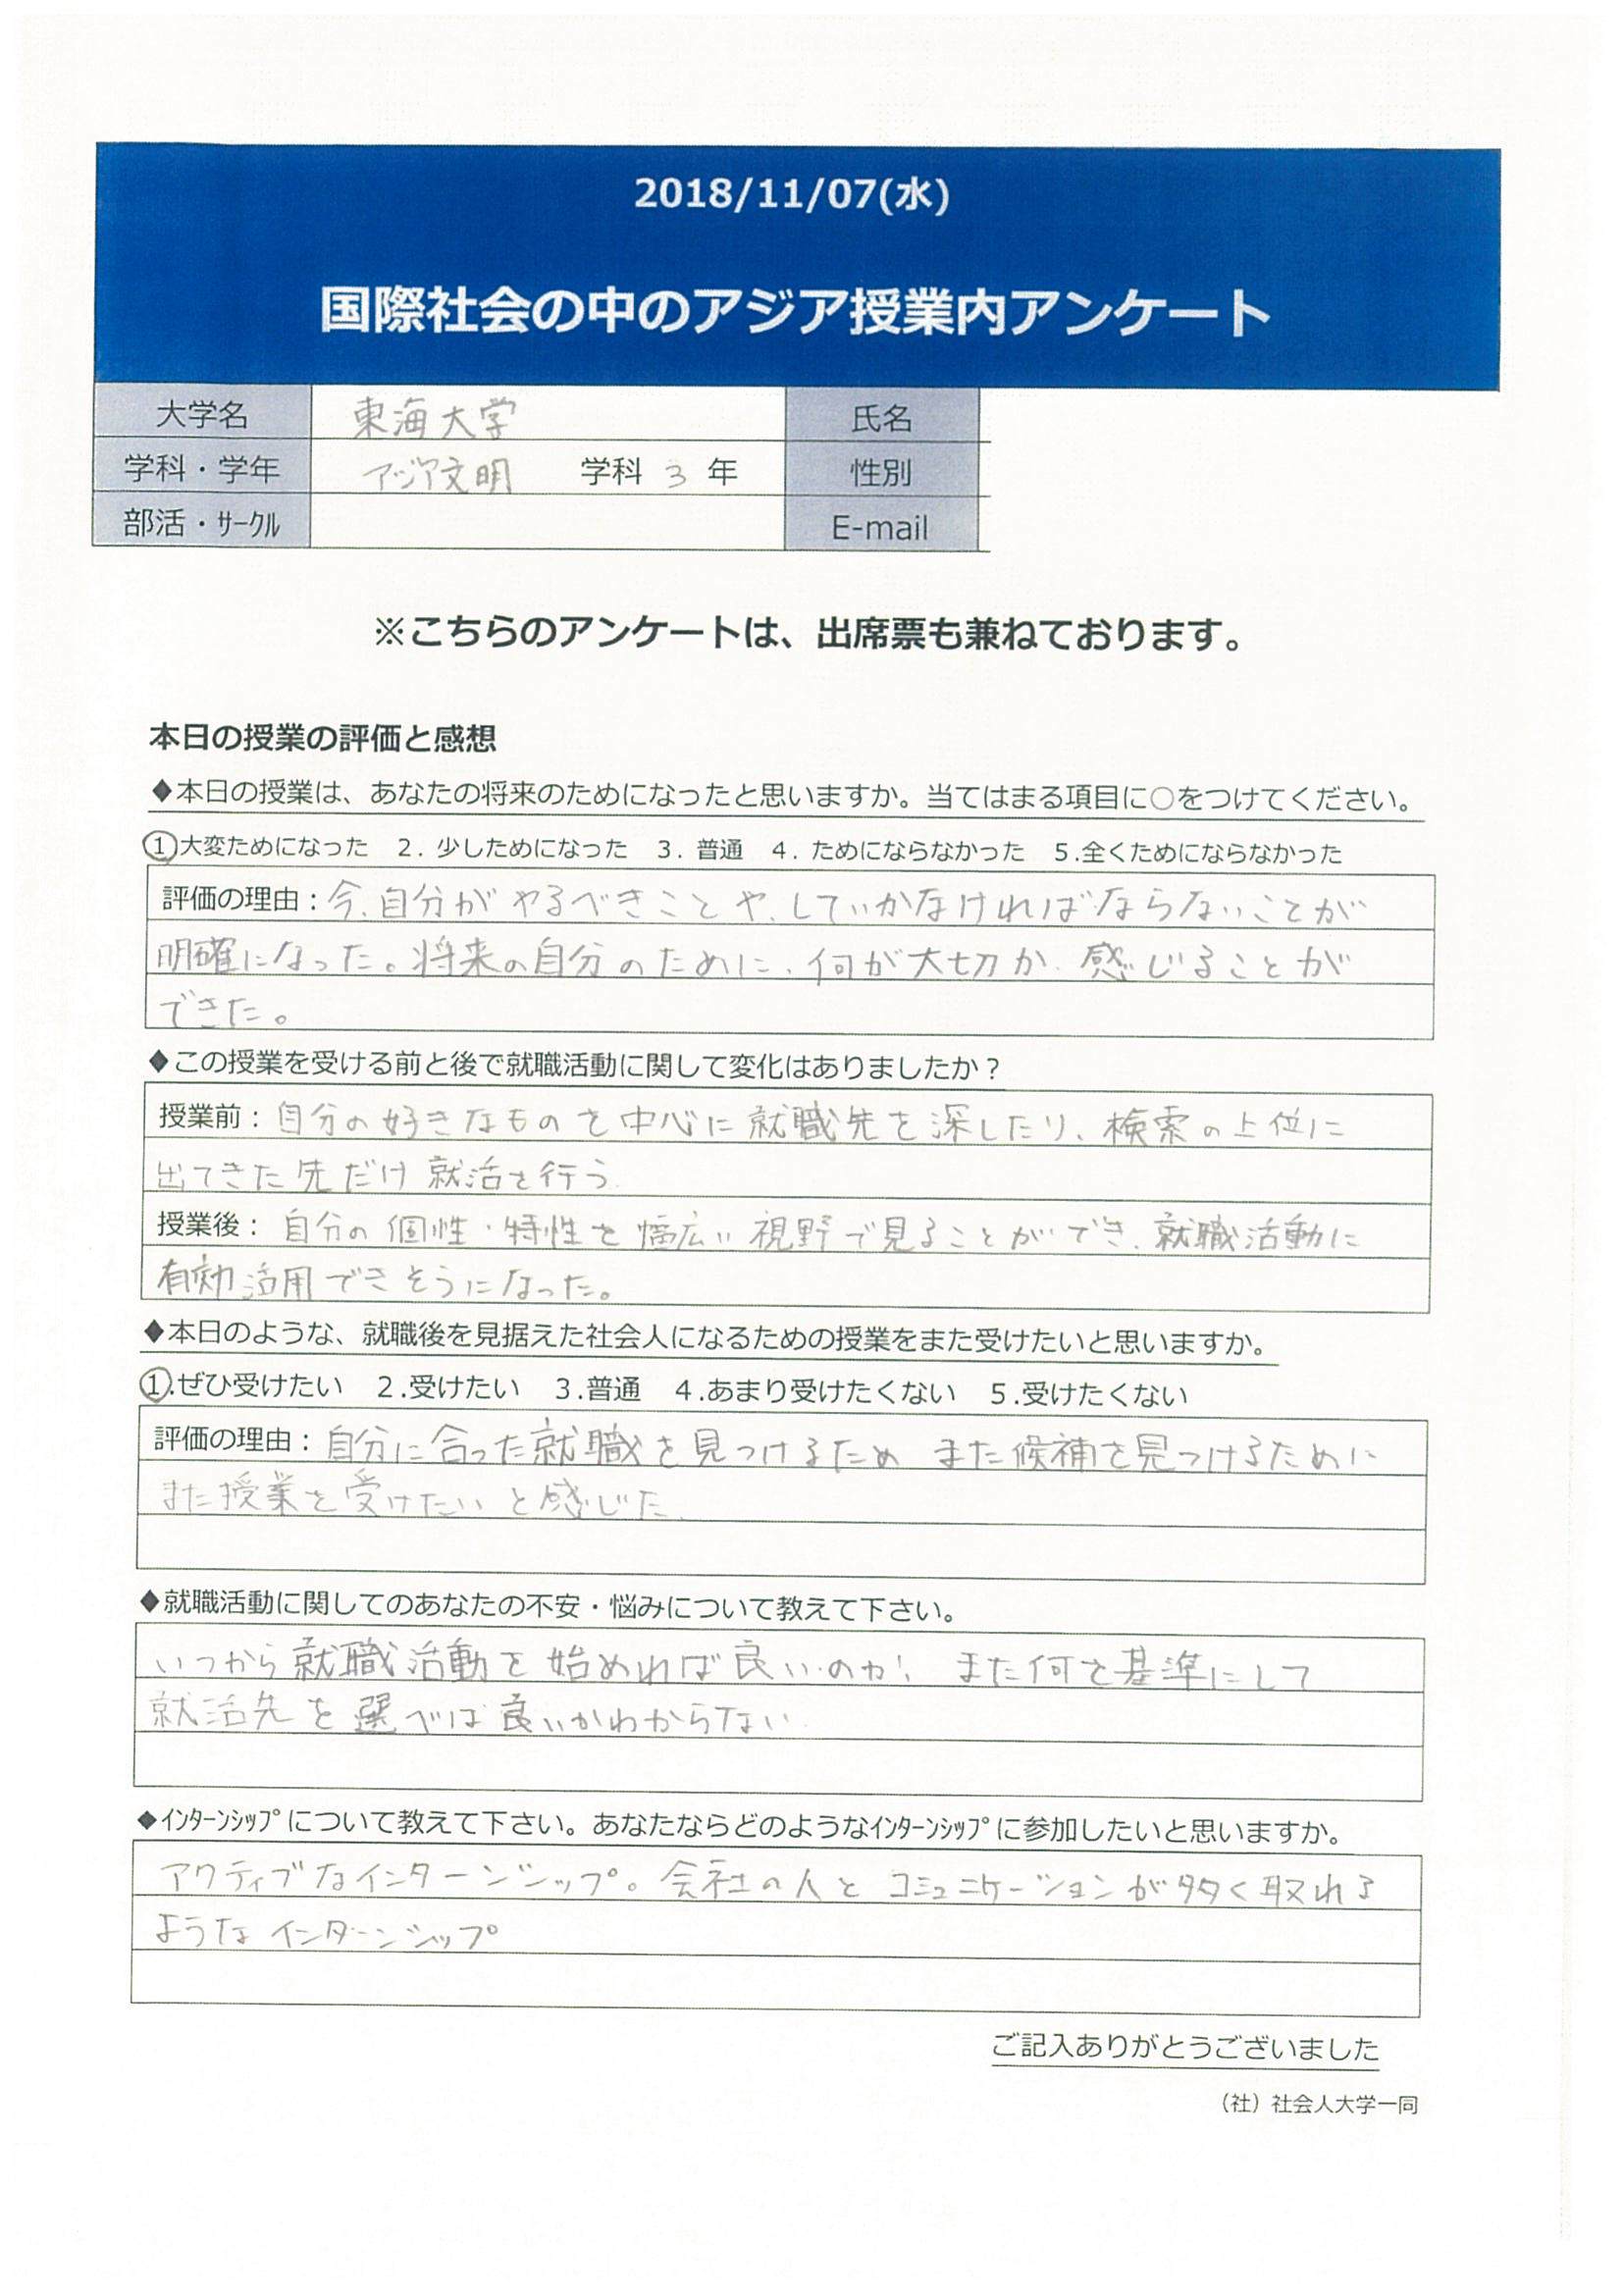 2018/11/07(水)
国際社会の中のアジア授業内アンケート
大学名 東海大学 氏名
学科・学年 アジア文明 学科 3 年 性別
部活・ｻｰｸﾙ E-mail
※こちらのアンケートは、出席票も兼ねております。
本日の授業の評価と感想
◆本日の授業は、あなたの将来のためになったと思いますか。当てはまる項目に○をつけてください。
①大変ためになった 2. 少しためになった 3. 普通 4. ためにならなかった 5.全くためにならなかった
評価の理由：今、自分がやるべきことや、していかなければならないことが
明確になった。将来の自分のために、何が大切か、感じることが
できた。
◆この授業を受ける前と後で就職活動に関して変化はありましたか？
授業前：自分の好きなものを中心に就職先を深したり、検索の上位に
出てきた先だけ就活を行う
授業後：自分の個性・特性を幅広い視野で見ることができ、就職活動に
有効活用できそうになった。
◆本日のような、就職後を見据えた社会人になるための授業をまた受けたいと思いますか。
①.ぜひ受けたい 2.受けたい 3.普通 4.あまり受けたくない 5.受けたくない
評価の理由：自分に合った就職を見つけるため また候補を見つけるために
また授業を受けたいと感じた、
◆就職活動に関してのあなたの不安・悩みについて教えて下さい。
いつから就職活動を始めれば良いのか、また何を基準にして
就活先を選べば良いかわからない
◆ｲﾝﾀｰﾝｼｯﾌﾟについて教えて下さい。あなたならどのようなｲﾝﾀｰﾝｼｯﾌﾟに参加したいと思いますか。
アクティブなインターンシップ。会社の人とコミュニケーションが多く取れる
ようなインターンシップ
ご記入ありがとうございました
（社）社会人大学一同